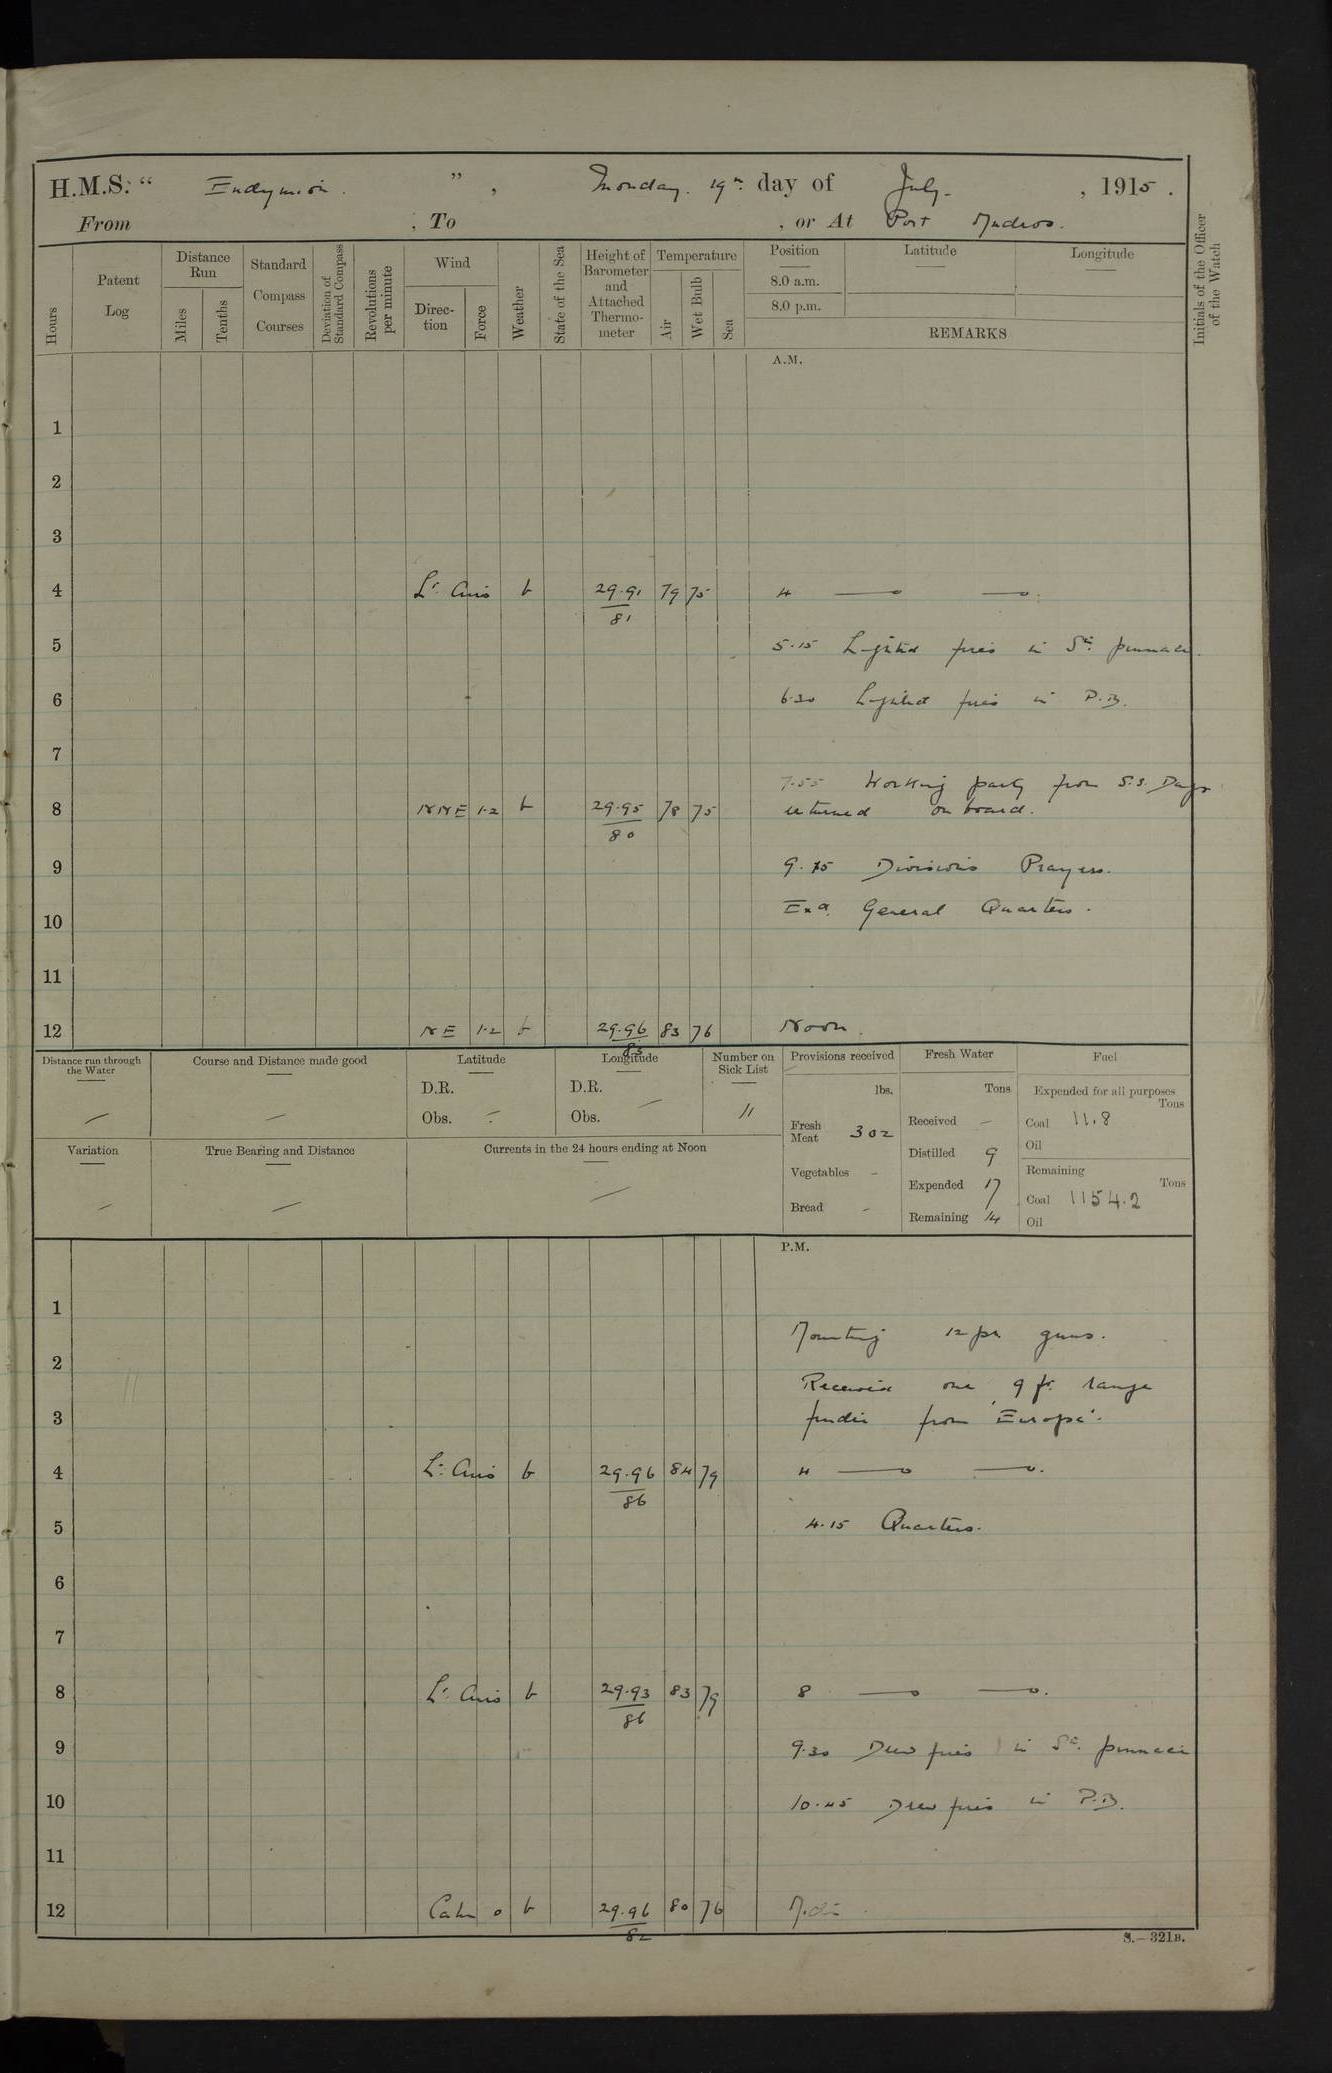 H.M.S. " Endymion. ", Monday. 19th day of July. , 1915.
From , To , or At Port Mudros.
Hours
Patent Log
Distance Run
Miles
Tenths
Standard Compass Courses
Deviation of Standard Compass
Revolutions per minute
Wind
Direction
Force
Weather
State of the Sea
Height of Barometer and Attached Thermometer
Temperature
Air
Wet Bulb
Sea
Position
8.0 a.m.
8.0 p.m.
Latitude
Longitude
REMARKS
Initials of the Officer of the Watch
A.M.
1
2
3
4 Lt. Airs b 29.91 79 75 4 — —
81
5 5.15 Lighted fires in St. pinnace.
6 6.30 Lighted fires in P.B.
7
7.55 Working party from S.S.
8 NNE 1.2 b 29.95 78 75 returned on board.
80
9 9.15 Divisions Prayers.
Exd. General Quarters.
10
11
12 NE 1.2 b 29.96 83 76 Noon.
83
Distance run through the Water —
Course and Distance made good —
Latitude
D.R.
Obs. —
Longitude
D.R. —
Obs.
Number on Sick List
11
Variation —
True Bearing and Distance —
Currents in the 24 hours ending at Noon —
Provisions received
lbs.
Fresh Meat 302
Vegetables -
Bread -
Fresh Water
Tons
Received -
Distilled 9
Expended 17
Remaining 14
Fuel
Expended for all purposes
Tons
Coal 11.8
Oil
Remaining
Tons
Coal 1154.2
Oil
P.M.
1
Mounting 12 pr. guns.
2
Received one 9 ft. range
3 finder from 'Europa'.
4 Lt. Airs b 29.96 84 79 4 — —.
86
5 4.15 Quarters.
6
7
8 Lt. Airs b 29.93 83 79 8 — —.
86
9 9.30 Drew fires in St. pinnace
10 10.45 Drew fires in P.B.
11
12 Calm 0 b 29.96 80 76 Mdt.
82
S.—321B.